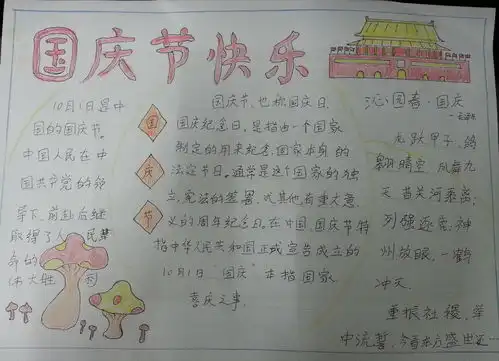 国庆节快乐
10月1日是中
国的国庆节。
中国人民在中
国共产党的领
导下,前赴后继
取得了人民革
命的
伟大胜利
国
庆
节
国庆节,也称国庆日、
国庆纪念日,是指由一个国家
制定的用来纪念国家本身的
法定节日,通常是这个国家的独
立、宪法的签署,或其他有重大意
义的周年纪念日。在中国,国庆节特
指中华人民共和国正式宣告成立的
10月1日“国庆”本指国家
喜庆之事。
沁园春·国庆
龙跃甲子,鸽
翱晴空,凤舞九
天 昔关河
列强逐鹿,神
州放眼,一鹤
冲天
重振社稷,举
中流誓,今看东方盛世还…